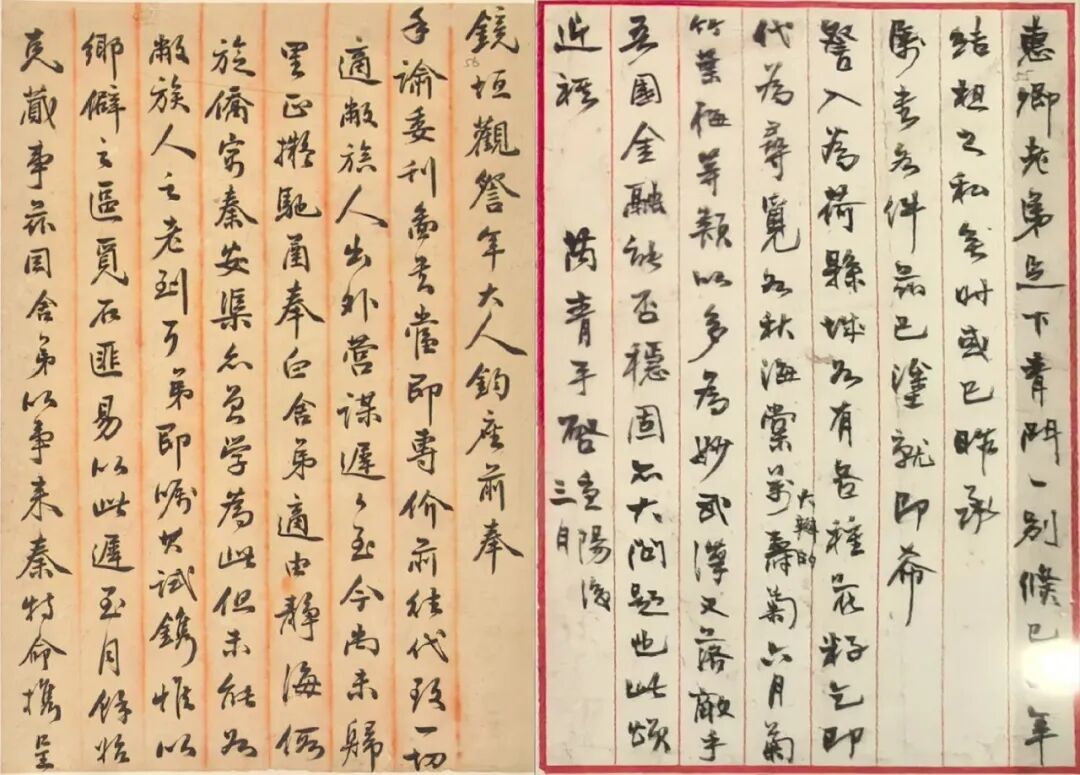 鏡垣觀詧年大人鈞座前奉
手諭委刊圖書當即專价前往代致一切
適敝族人出外營謀遲〻至今尚未歸
里正擬馳函奉白舍弟適由靜海
旋僑寓秦安渠亦曾学為此但未能如
敝族人之老到耳弟即囑其試鐫惟以
鄉僻之區覓石匪易以此遲至月餘始
克蕆事茲因舍弟以事来秦特命攜呈
56
惠卿老弟足下青門一別倏已年
結祖之私無時或已昨承
屬書各件茲已塗就即希
詧入為荷縣城如有各種花籽乞即
代為尋覓如秋海棠萬壽菊六月菊
大瓣的
竹葉梅等類以多為妙武漢又落敵手
吾國金融能否穩固亦大問題也此頌
近祺 青手啟 重陽後
三日